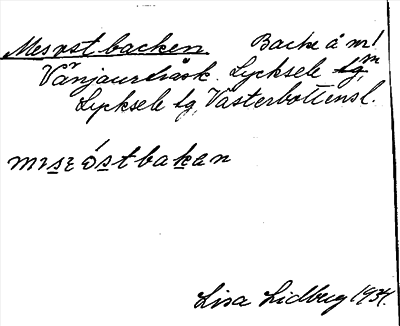 Mesostbacken Backe å m!
Vänjaurträsk. Lycksele sn,
Lycksele lg, Västerbottensl.
Lisa Lidberg 1934.